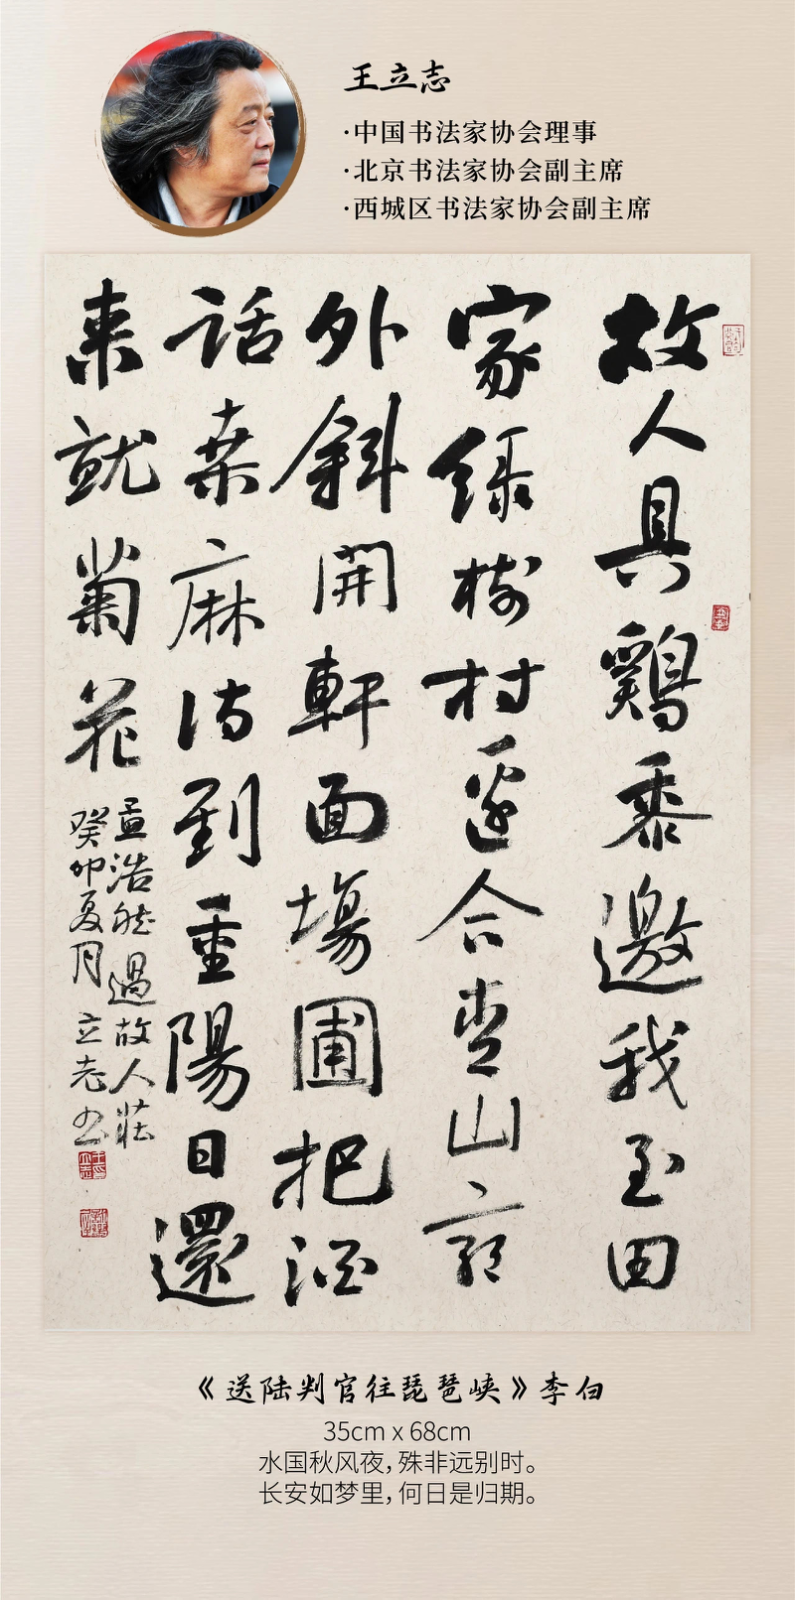 王立志
·中国书法家协会理事
·北京书法家协会副主席
·西城区书法家协会副主席
故人具鷄黍邀我至田
家绿树村边合青山郭
外斜開軒面場圃把酒
話桒麻待到重陽日還
来就菊花
孟浩然過故人莊
癸卯夏月立志书
《送陆判官往琵琶峡》李白
35cm x 68cm
水国秋风夜,殊非远别时。
长安如梦里,何日是归期。